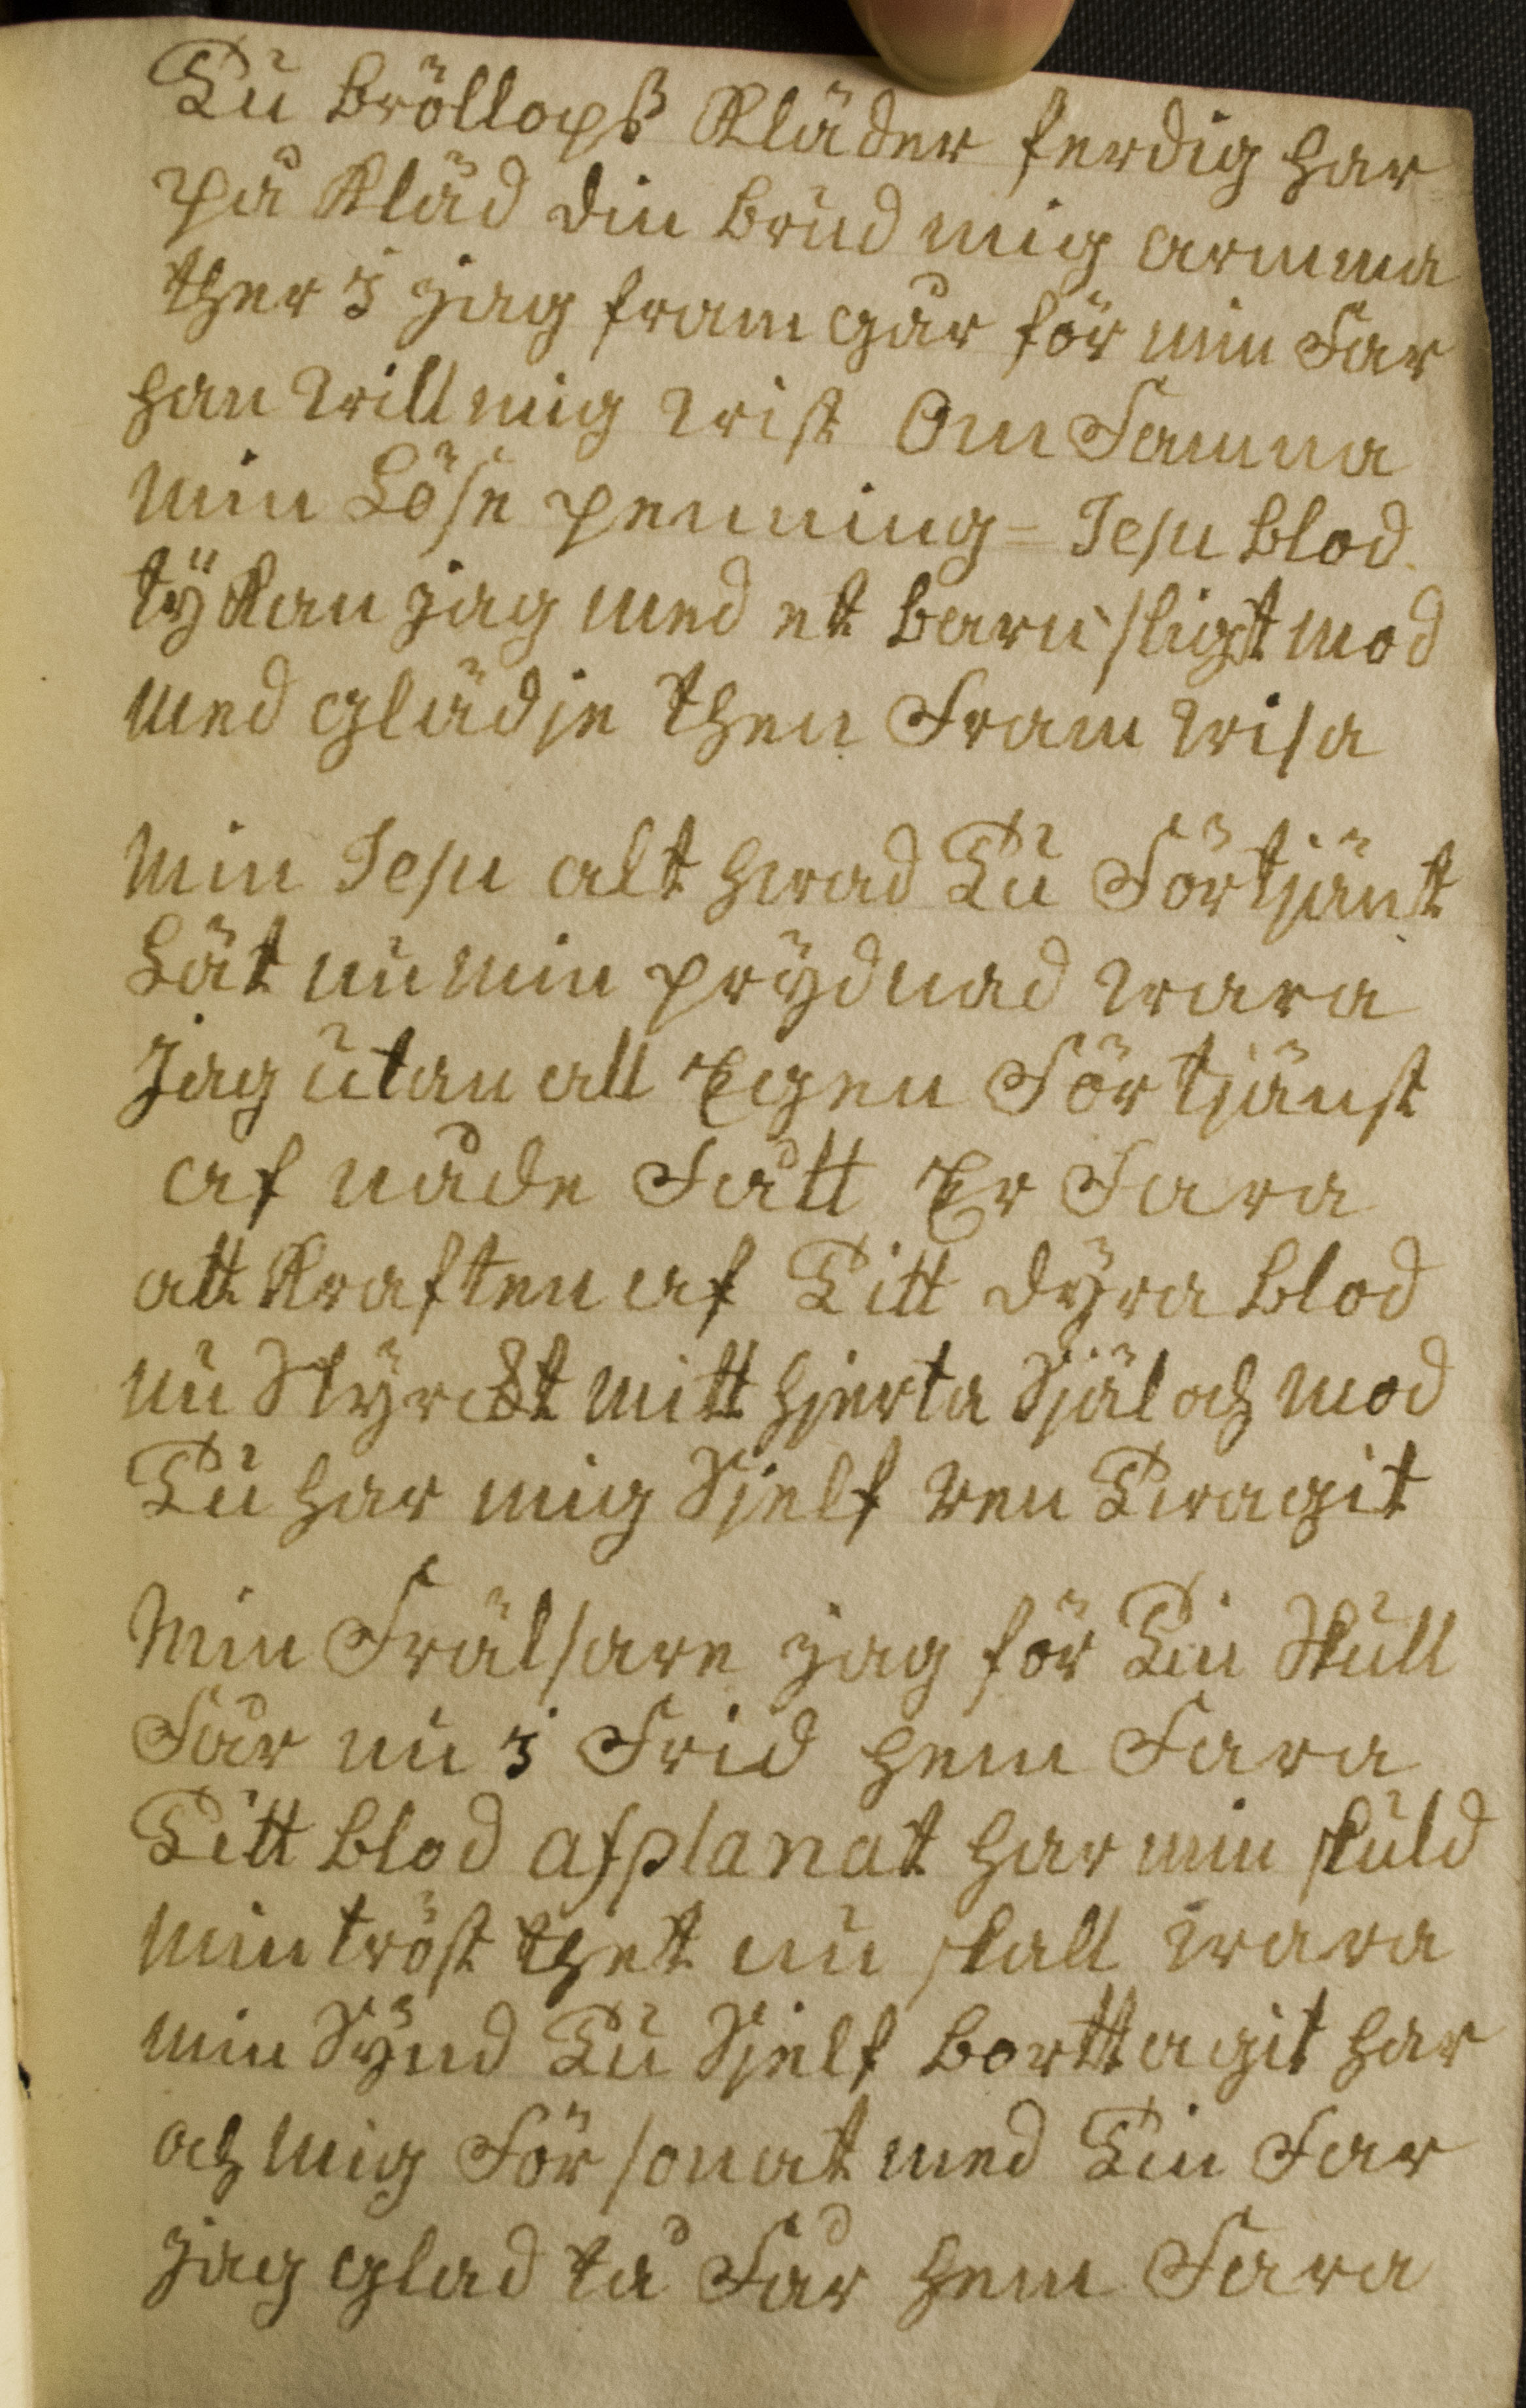 Du bröllopß Kläder ferdig har
på Kläd din brud mig armma
ther i jag fram går för min Far
han will mig wist Om Famna
min Löse penning = Jesu blod.
ty Kan jag med et barnsligt mod
med glädje then Fram wisa
min Jesu alt hwad Du Förtjänt
Lät nu min prydnad wara
jag utan all Egen Förtjänst
af nåde Fått Er Fara
att Kraften af Ditt dyra blod
nu Styrckt mitt hjerta Själ och mod
Du har mig Sjelf ren Twagit
min Frälsare jag för Din Skull
Får nu i Frid hem Fara
Ditt blod afplanat har min skuld
min tröst thet nu skall wara
min Synd Du Sjelf borttagit har
och mig Försonat med Din Far
jag glad tå Får hem Fara